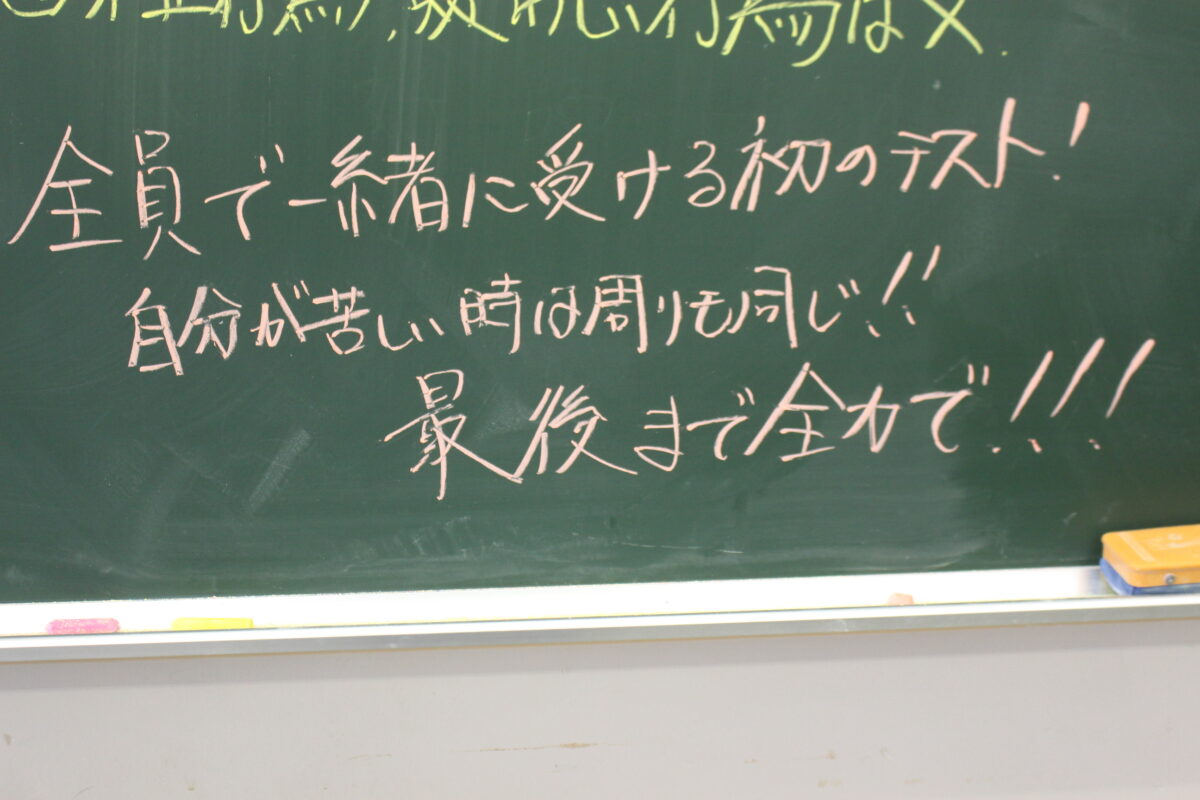 不正行為、疑わしい行為は×.
全員で一緒に受ける初のテスト!
自分が苦しい時は周りも同じ!!
最後まで全力で!!!